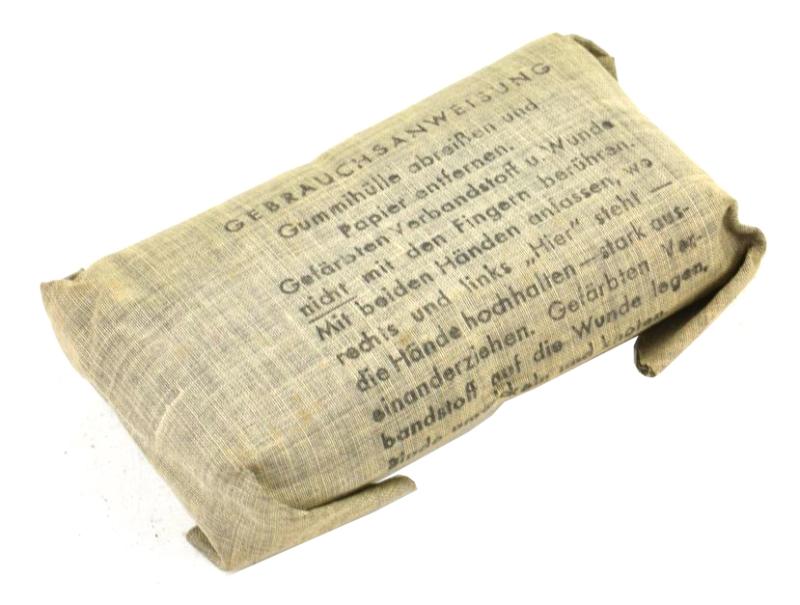 GEBRAUCHSANWEISUNG
Gummihülle abreißen und
Papier entfernen.
Gefärbten Verbandstoff u. Wunde
nicht mit den Fingern berühren.
Mit beiden Händen anfassen, wo
rechts und links „Hier" steht —
die Hände hochhalten — stark aus-
einanderziehen. Gefärbten Ver-
bandstoff auf die Wunde legen,
und